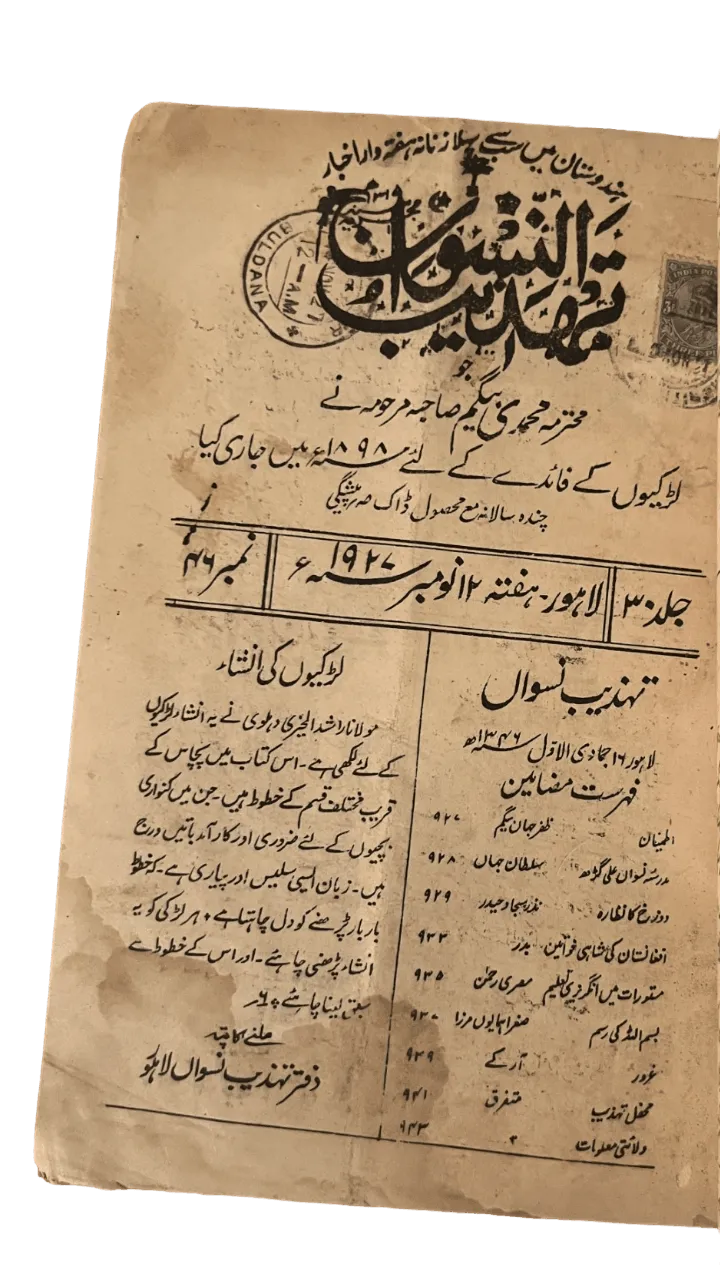 ہندوستان میں سب سے پہلا زنانہ ہفتہ وار اخبار
تہذیب النسواں
BULDANA
12-A.M
NOV 27
INDIA PO
جو
محترمہ محمدی بیگم صاحبہ مرحومہ نے
لڑکیوں کے فائدے کے لئے سنہ ۱۸۹۸ء میں جاری کیا
چندہ سالانہ مع محصول ڈاک پیشگی
جلد ۳۰
لاہور۔ ہفتہ ۱۲ نومبر سنہ ۱۹۲۷ء
نمبر ۴۶
تہذیب نسواں
لاہور ۱۶ جمادی الاول سنہ ۱۳۴۶ھ
فہرست مضامین
اطمینان ظفر جہاں بیگم ۹۲۷
مدرسہ نسواں علی گڑھ سلطان جہاں ۹۲۸
دوزخ کا نظارہ نذر سجاد حیدر ۹۲۹
افغانستان کی شاہی خواتین بدر ۹۳۳
مستورات میں انگریزی تعلیم معری رحمٰن ۹۳۵
بسم اللہ کی رسم صغرا ہمایوں مرزا ۹۳۷
غرور آر کے ۹۳۹
محفل تہذیب متفرق ۹۴۱
ولائتی معلومات ۹۴۳
لڑکیوں کی انشاء
مولانا راشد الخیری دہلوی نے یہ انشاء لڑکیوں
کے لئے لکھی ہے۔ اس کتاب میں پچاس کے
قریب مختلف قسم کے خطوط ہیں۔ جن میں کنواری
بچیوں کے لئے ضروری اور کارآمد باتیں درج
ہیں۔ زبان ایسی سلیس اور پیاری ہے۔ کہ خطوط
بار بار پڑھنے کو دل چاہتا ہے۔ ہر لڑکی کو یہ
انشاء پڑھنی چاہئے۔ اور اس کے خطوط سے
سبق لینا چاہئے
ملنے کا پتہ
دفتر تہذیب نسواں لاہور